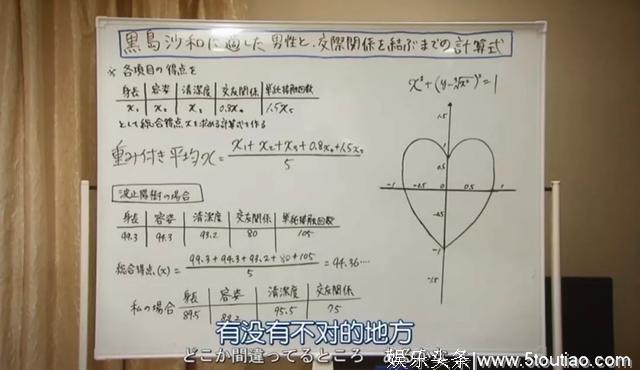 黒島沙和に適した男性と、交際関係を結ぶまでの計算式
※ 各項目の得点を
身長 容姿 清潔度 交友関係 単純接触回数
x₁ x₂ x₃ 0.8x₄ 1.5x₅
として総合得点xを求める計算式を作る
重み付き平均x = (x₁+x₂+x₃+0.8x₄+1.5x₅)/5
x²+(y-∛x²)²=1
1.5
1
0.5
-1 -0.5 0 0.5 1
-0.5
-1
-1.5
波止陽樹の場合
身長 容姿 清潔度 交友関係 単純接触回数
99.3 94.3 93.2 80 105
総合得点(x) = (99.3+94.3+93.2+80+105)/5 = 94.36…
私の場合
身長 容姿 清潔度 交友関係
89.5 95.5 75
有没有不对的地方
どこか間違ってるところ
娱乐头条
www.5toutiao.com